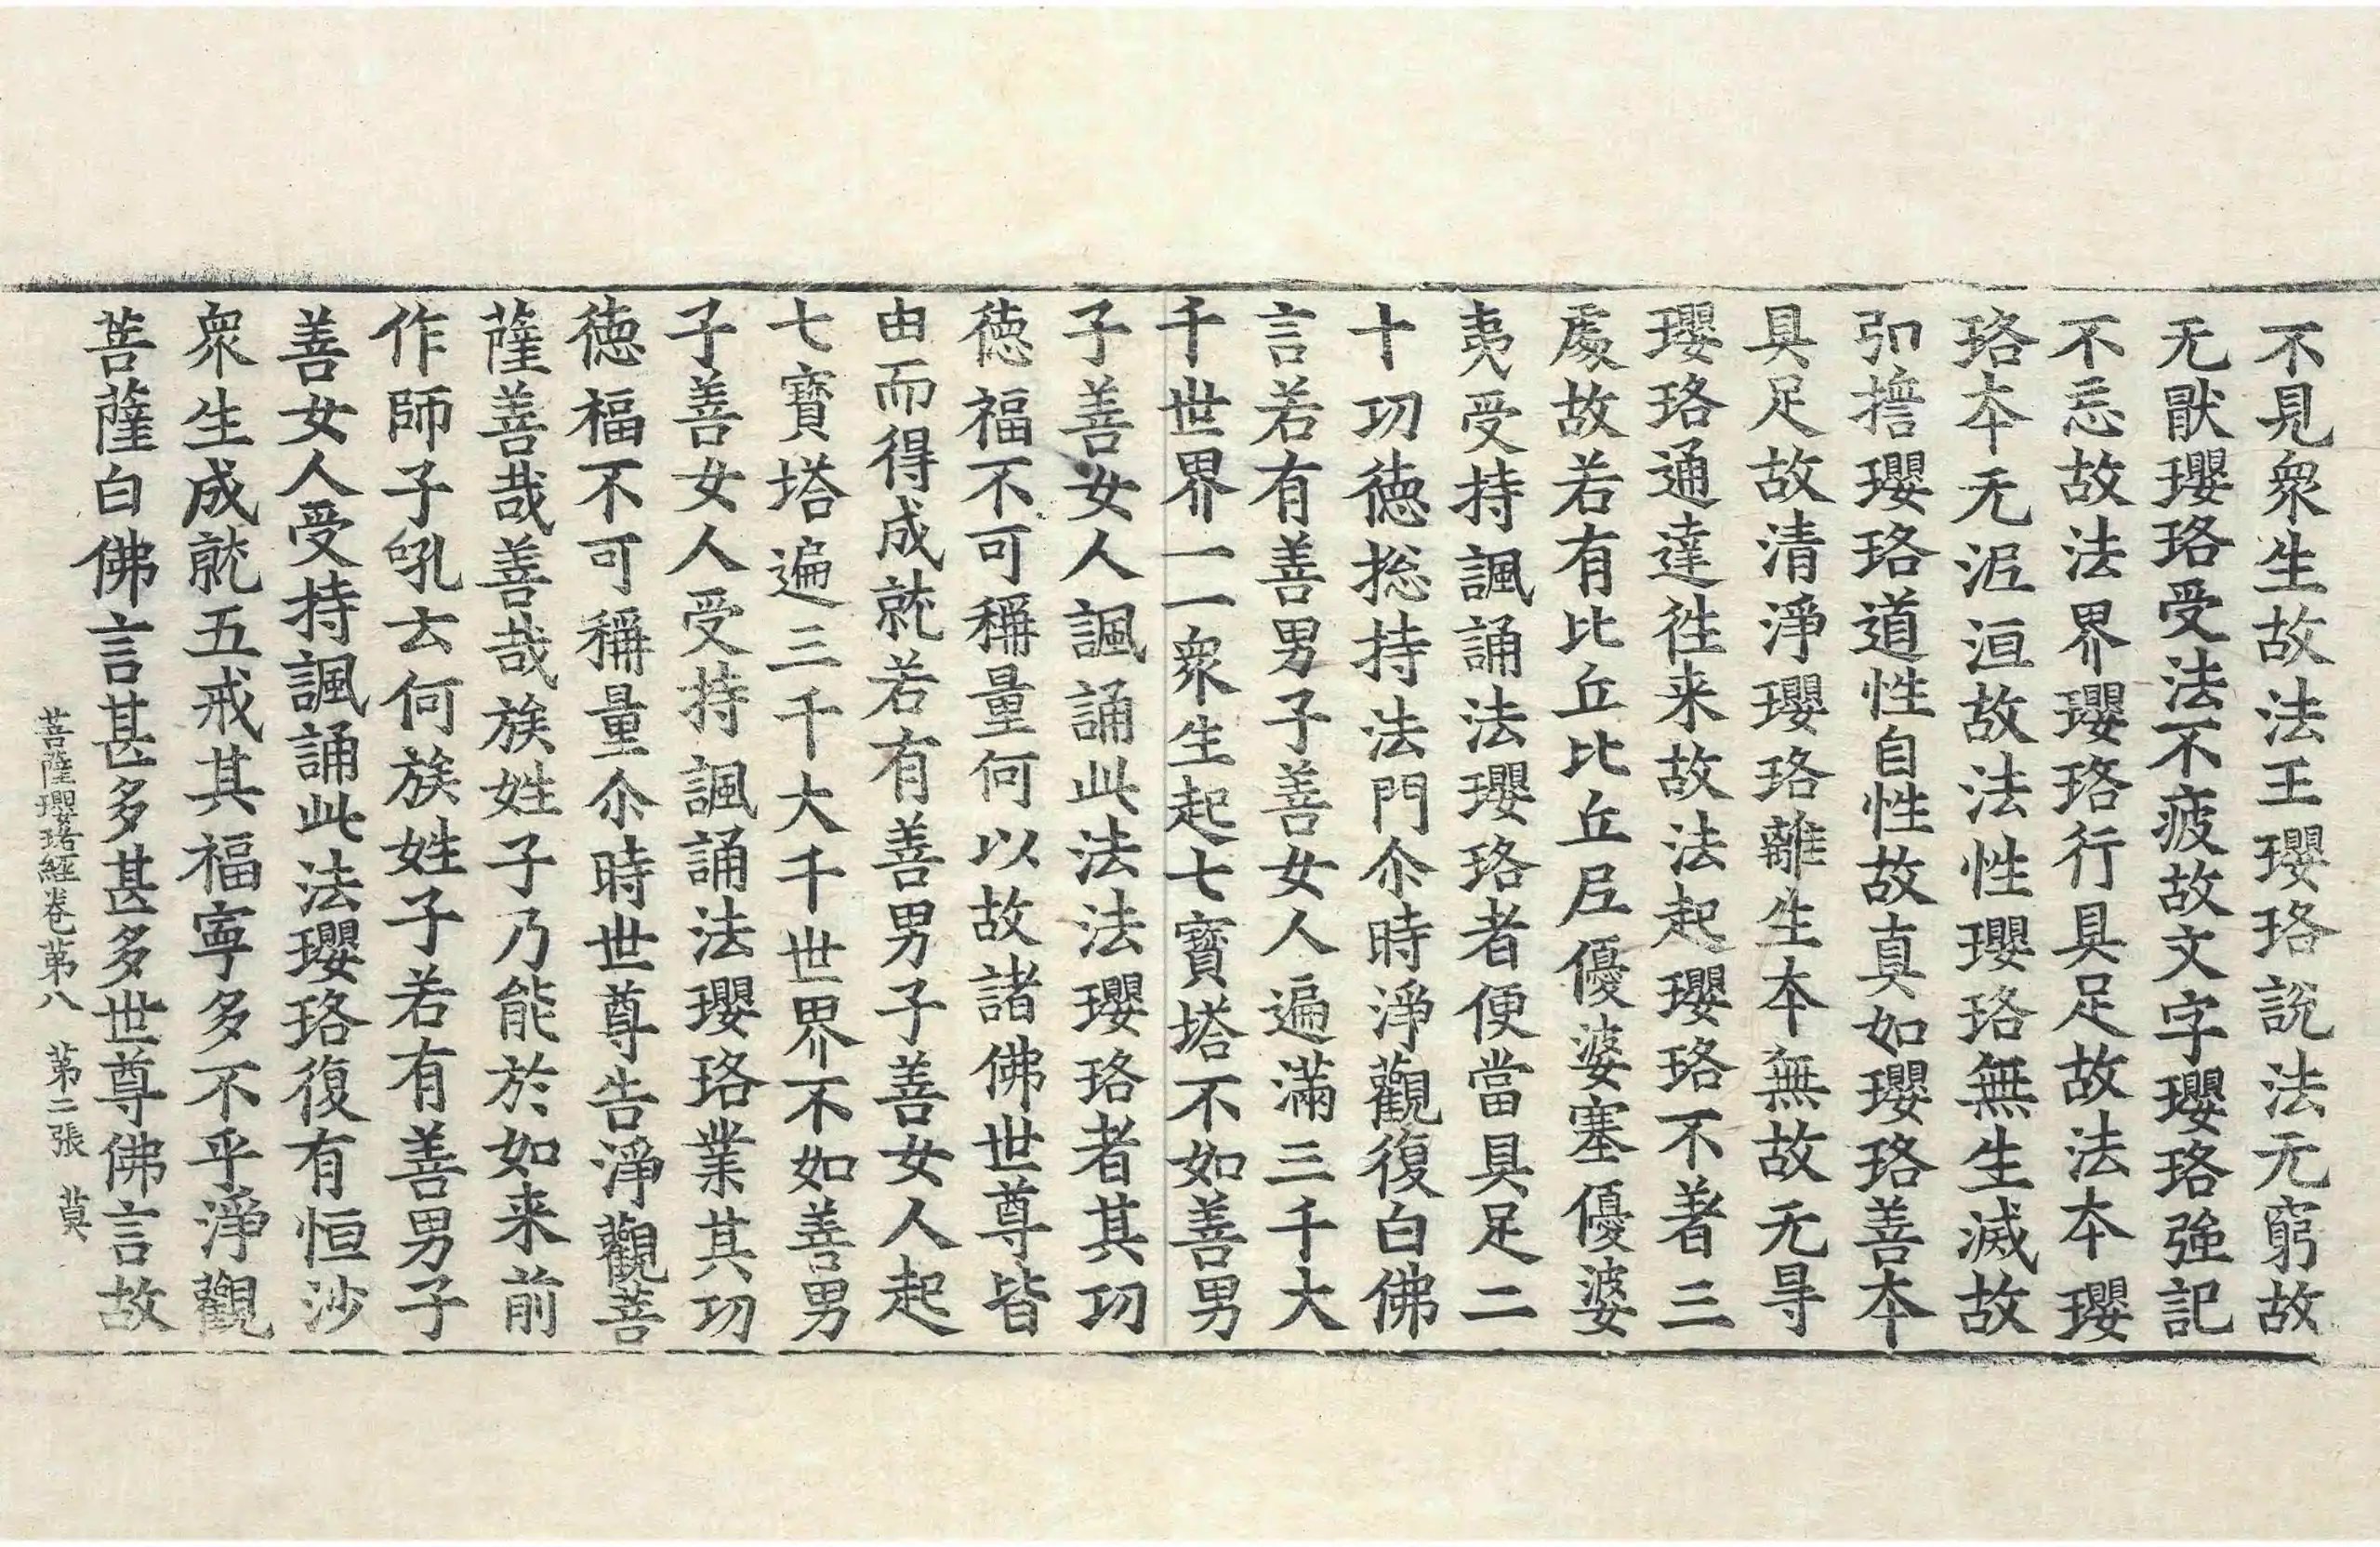 不見衆生故法王瓔珞說法无窮故
无猒瓔珞受法不疲故文字瓔珞強記
不忘故法界瓔珞行具足故法本瓔
珞本无泥洹故法性瓔珞無生滅故
弘誓瓔珞道性自性故真如瓔珞善本
具足故清淨瓔珞離生本無故无㝵
瓔珞通達徃来故法起瓔珞不著三
處故若有比丘比丘尼優婆塞優婆
夷受持諷誦法瓔珞者便當具足二
十功德捴持法門尒時淨觀復白佛
言若有善男子善女人遍滿三千大
千世界一一衆生起七寶塔不如善男
子善女人諷誦此法法瓔珞者其功
德福不可稱量何以故諸佛世尊皆
由而得成就若有善男子善女人起
七寶塔遍三千大千世界不如善男
子善女人受持諷誦法瓔珞業其功
德福不可稱量尒時世尊告淨觀菩
薩善哉善哉族姓子乃能於如来前
作師子吼去何族姓子若有善男子
善女人受持諷誦此法瓔珞復有恒沙
衆生成就五戒其福寜多不乎淨觀
菩薩白佛言甚多甚多世尊佛言故
菩薩瓔珞經卷第八 第二張 莫